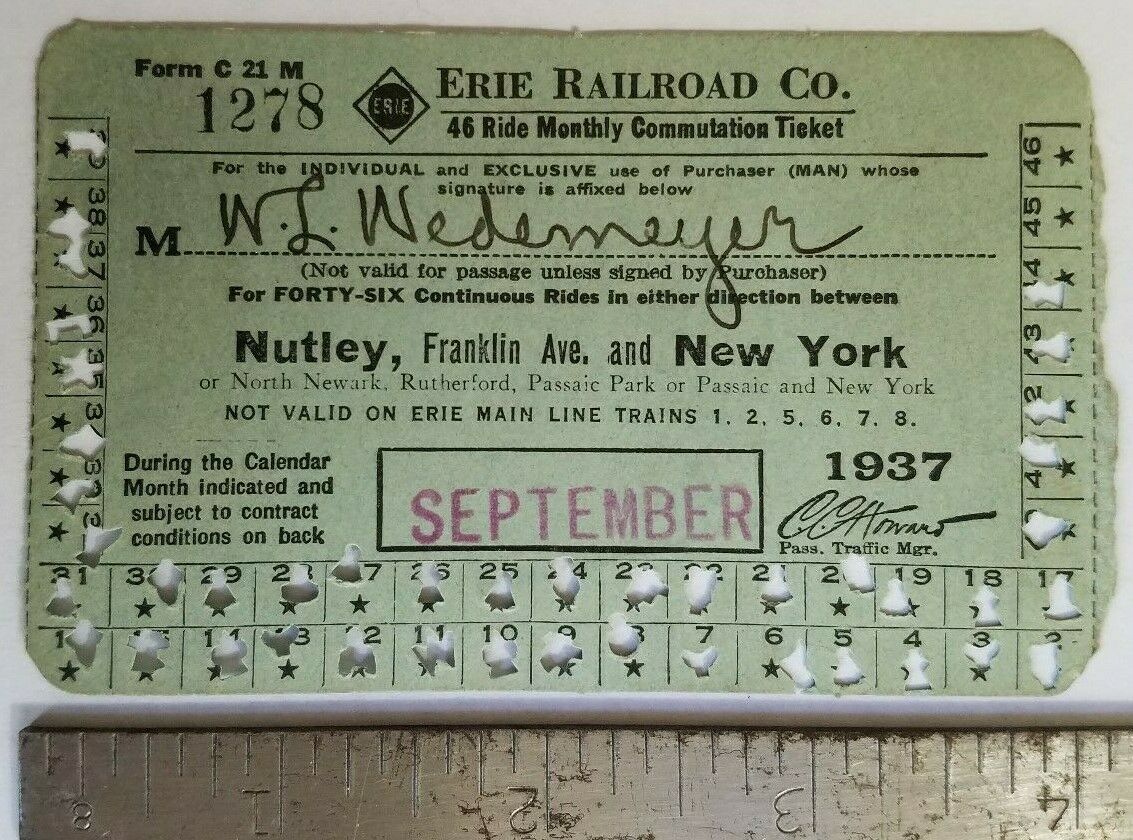 Form C 21 M
1278
ERIE
ERIE RAILROAD CO.
46 Ride Monthly Commutation Ticket
For the INDIVIDUAL and EXCLUSIVE use of Purchaser (MAN) whose
signature is affixed below
M W. L. Wedemeyer
(Not valid for passage unless signed by Purchaser)
For FORTY-SIX Continuous Rides in either direction between
Nutley, Franklin Ave. and New York
or North Newark, Rutherford, Passaic Park or Passaic and New York
NOT VALID ON ERIE MAIN LINE TRAINS 1, 2, 5, 6, 7, 8.
During the Calendar
Month indicated and
subject to contract
conditions on back
SEPTEMBER
1937
C. C. Howard
Pass. Traffic Mgr.
38 37 36 35
46 45
31 29 25 24 19 18 17
11 10 9 8 7 6 5 4 3 2
8 1 2 3 4